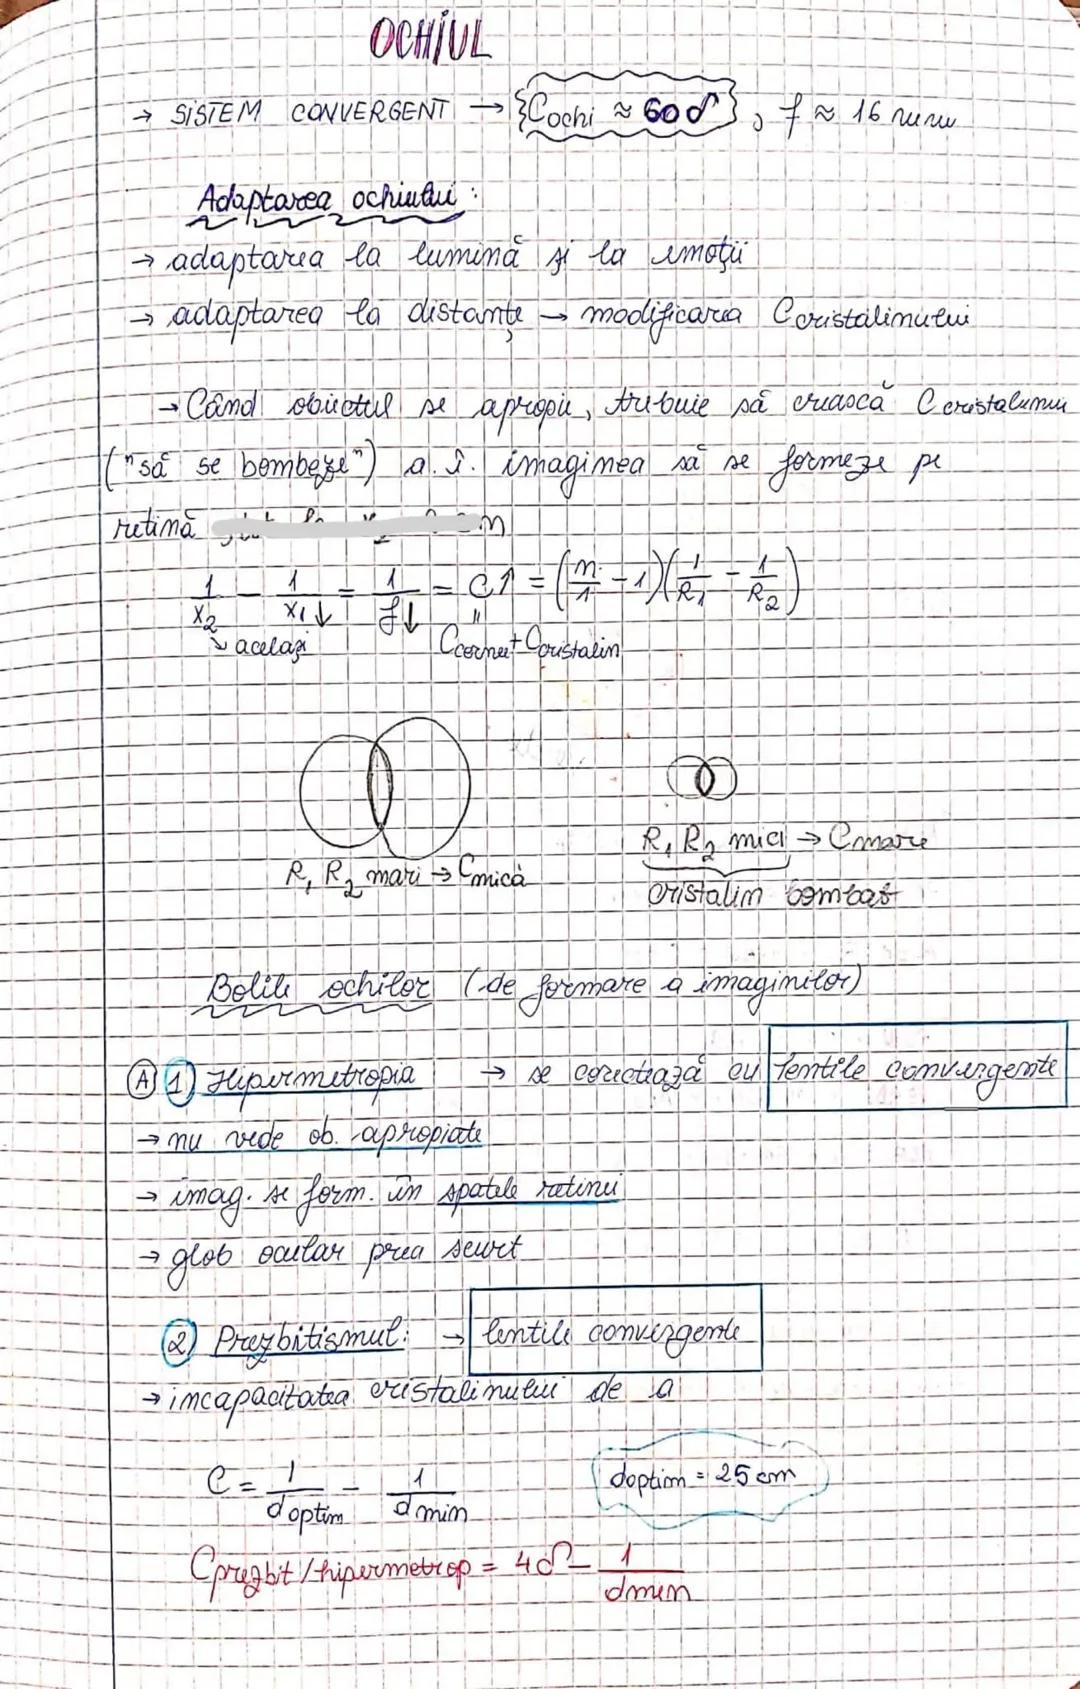 OCHIUL
→ SISTEM CONVERGENT → Cochi ≈ 60 δ , f ≈ 16 mm
Adaptarea ochiului :
→ adaptarea la lumină și la emoții
→ adaptarea la distanțe → modificarea Ccristalinului
→ Când obiectul se apropie, trebuie să crească C cristalinului
("să se bombeze") a. î. imaginea să se formeze pe
retină
1/x₂ - 1/x₁↓ = 1/f↓ = C↑ = (n/1 - 1)(1/R₁ - 1/R₂)
↘ același " Ccornee + Ccristalin
R₁ R₂ mici → Cmare
R₁ R₂ mari → Cmică
cristalin bombat
Bolile ochilor (de formare a imaginilor)
A 1) Hipermetropia → se corectează cu lentile convergente
→ nu vede ob. apropiate
→ imag. se form. în spatele retinei
→ glob ocular prea scurt
2) Prezbitismul: → lentile convergente
→ incapacitatea cristalinului de a
C = 1/doptim - 1/dmin doptim = 25 cm
Cprezbit/hipermetrop = 4δ - 1/dmin